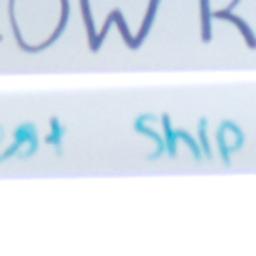 OW K
est Ship